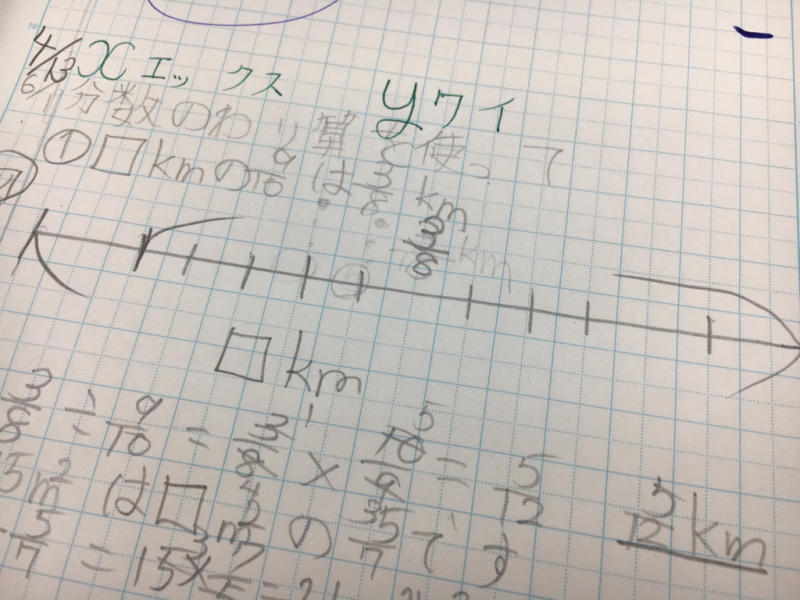 4/13 X エックス y ワイ
6/1 分数のわり算を使って
① □kmの9/10は3/8km
3/8 km
□km
3/8÷9/10=3/8×10/9=5/12
5/12km
15m²は□m²の5/7です
=15×7/5=21